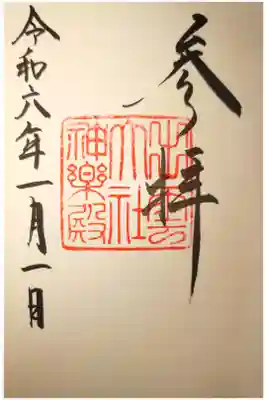 参拝
出雲
大社
神樂殿
令和六年一月一日